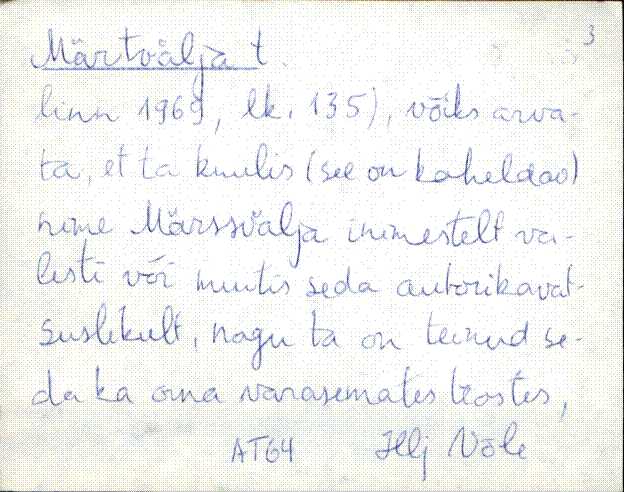 3
Märtvälja t.
linn 1969, lk. 135), võiks arva-
ta, et ta kuulis (see on kaheldav)
nime Märssvälja inimestelt va-
lesti või muutis seda autorikavat-
suslikult, nagu ta on teinud se-
da ka oma varasemates teostes,
AT64 Hlj Võle